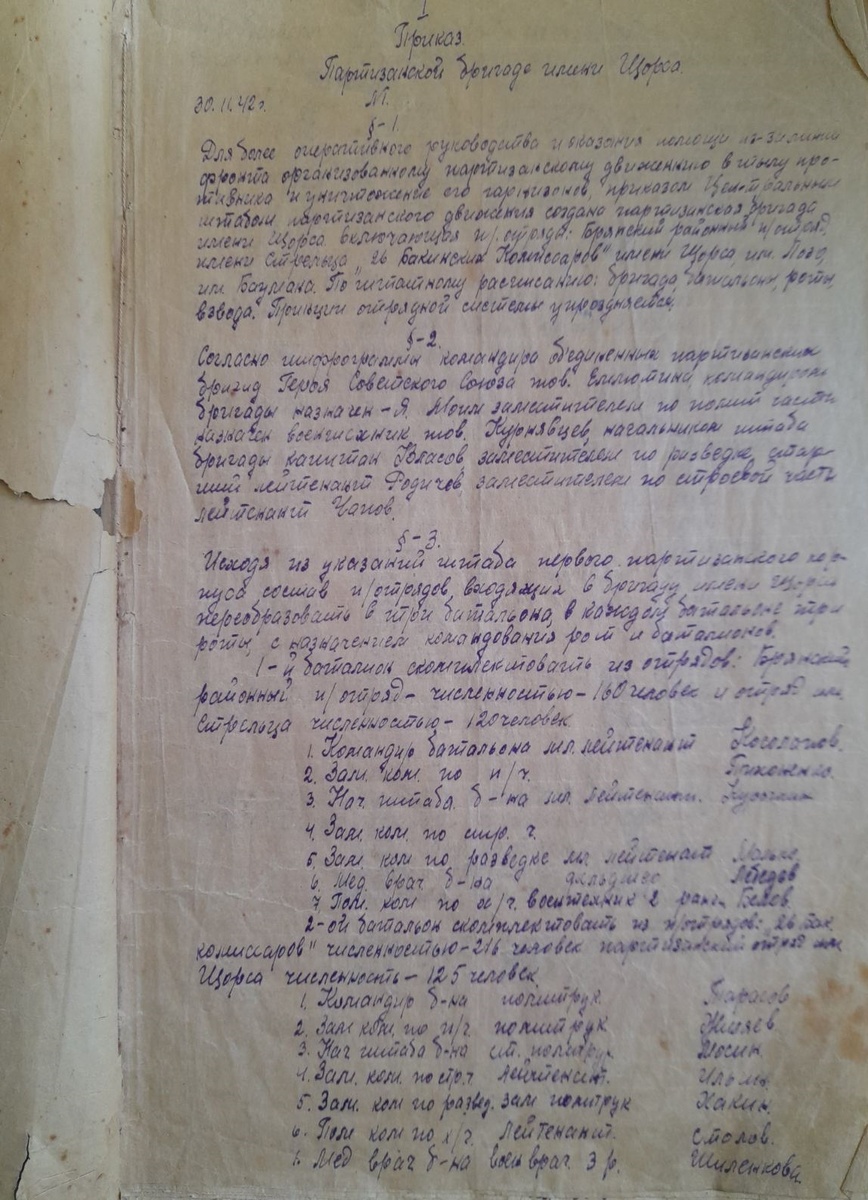 I
Приказ.
Партизанской бригаде имени Щорса.
30.11.42г. М.
§-1.
Для более оперативного руководства и оказания помощи из-за линии
фронта организованному партизанскому движению в тылу про-
тивника и уничтожение его гарнизонов приказом Центральным
штабом партизанского движения создана партизанская бригада
имени Щорса включающая п/отряды: Брянский районный п/отряд,
имени Стрельца "26 Бакинских Комиссаров" имени Щорса, им.
им. Баумана. По штатному расписанию: бригада, батальоны, роты,
взвода. Принцип отрядной системы упраздняется.
§-2.
Согласно шифрограммы командира объединенных партизанских
бригад Героя Советского Союза тов. Емлютина командиром
бригады назначен - Я. Моим заместителем по полит части
назначен воентехник тов. Курнявцев, начальником штаба
бригады капитан Власов, заместителем по разведке, стар-
ший лейтенант Родичов, заместителем по строевой части
лейтенант Чапов.
§-3.
Исходя из указаний штаба первого партизанского кор-
пуса состав п/отрядов, входящих в бригаду имени Щорса
переобразовать в три батальона, в каждом батальоне три
роты, с назначением командования рот и баталионов.
1-й баталион скомплектовать из отрядов: Брянский
районный п/отряд - численностью - 160 человек и отряд им.
Стрельца численностью - 120 человек
1. Командир батальона мл. лейтенант Косолапов.
2. Зам. ком. по п/ч.
3. Нач. штаба б-на мл. лейтенант.
4. Зам. ком. по стр. ч.
5. Зам. ком по разведке мл лейтенант
6. Мед. врач б-на Лебедов
7. Пом. ком по х/ч. воентехник 2 ранга Белов.
2-ой батальон скомплектовать из п/отрядов: "26 бак
комиссаров" численностью - 216 человек партизанский отряд им
Щорса численность - 125 человек.
1. Командир б-на политрук Тарасов
2. Зам ком. по п/ч. политрук Жиляев.
3. Нач штаба б-на ст. политрук Мосин.
4. Зам. ком. по стр.ч лейтенант. Ильин.
5. Зам. ком по развед. зам политрук Хакин.
6. Пом ком по х/ч. Лейтенант. Столов.
7. Мед врач б-на воен врач 3 р. Шиленкова.